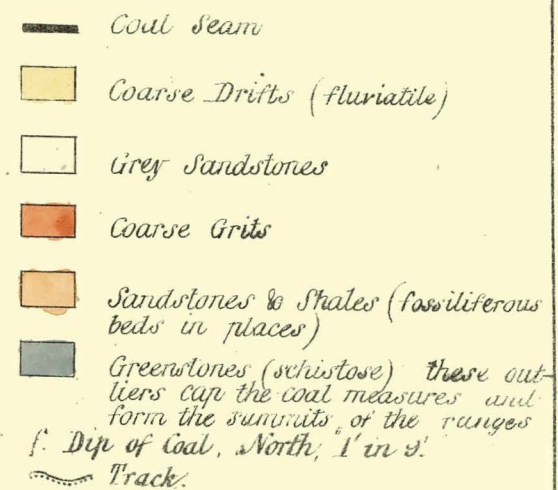 Coal Seam
Coarse Drifts (fluviatile)
Grey Sandstones
Coarse Grits
Sandstones & Shales (fossiliferous
beds in places)
Greenstones (schistose) these out-
liers cap the coal measures and
form the summits of the ranges
f. Dip of Coal, North, 1' in 9'.
Track.